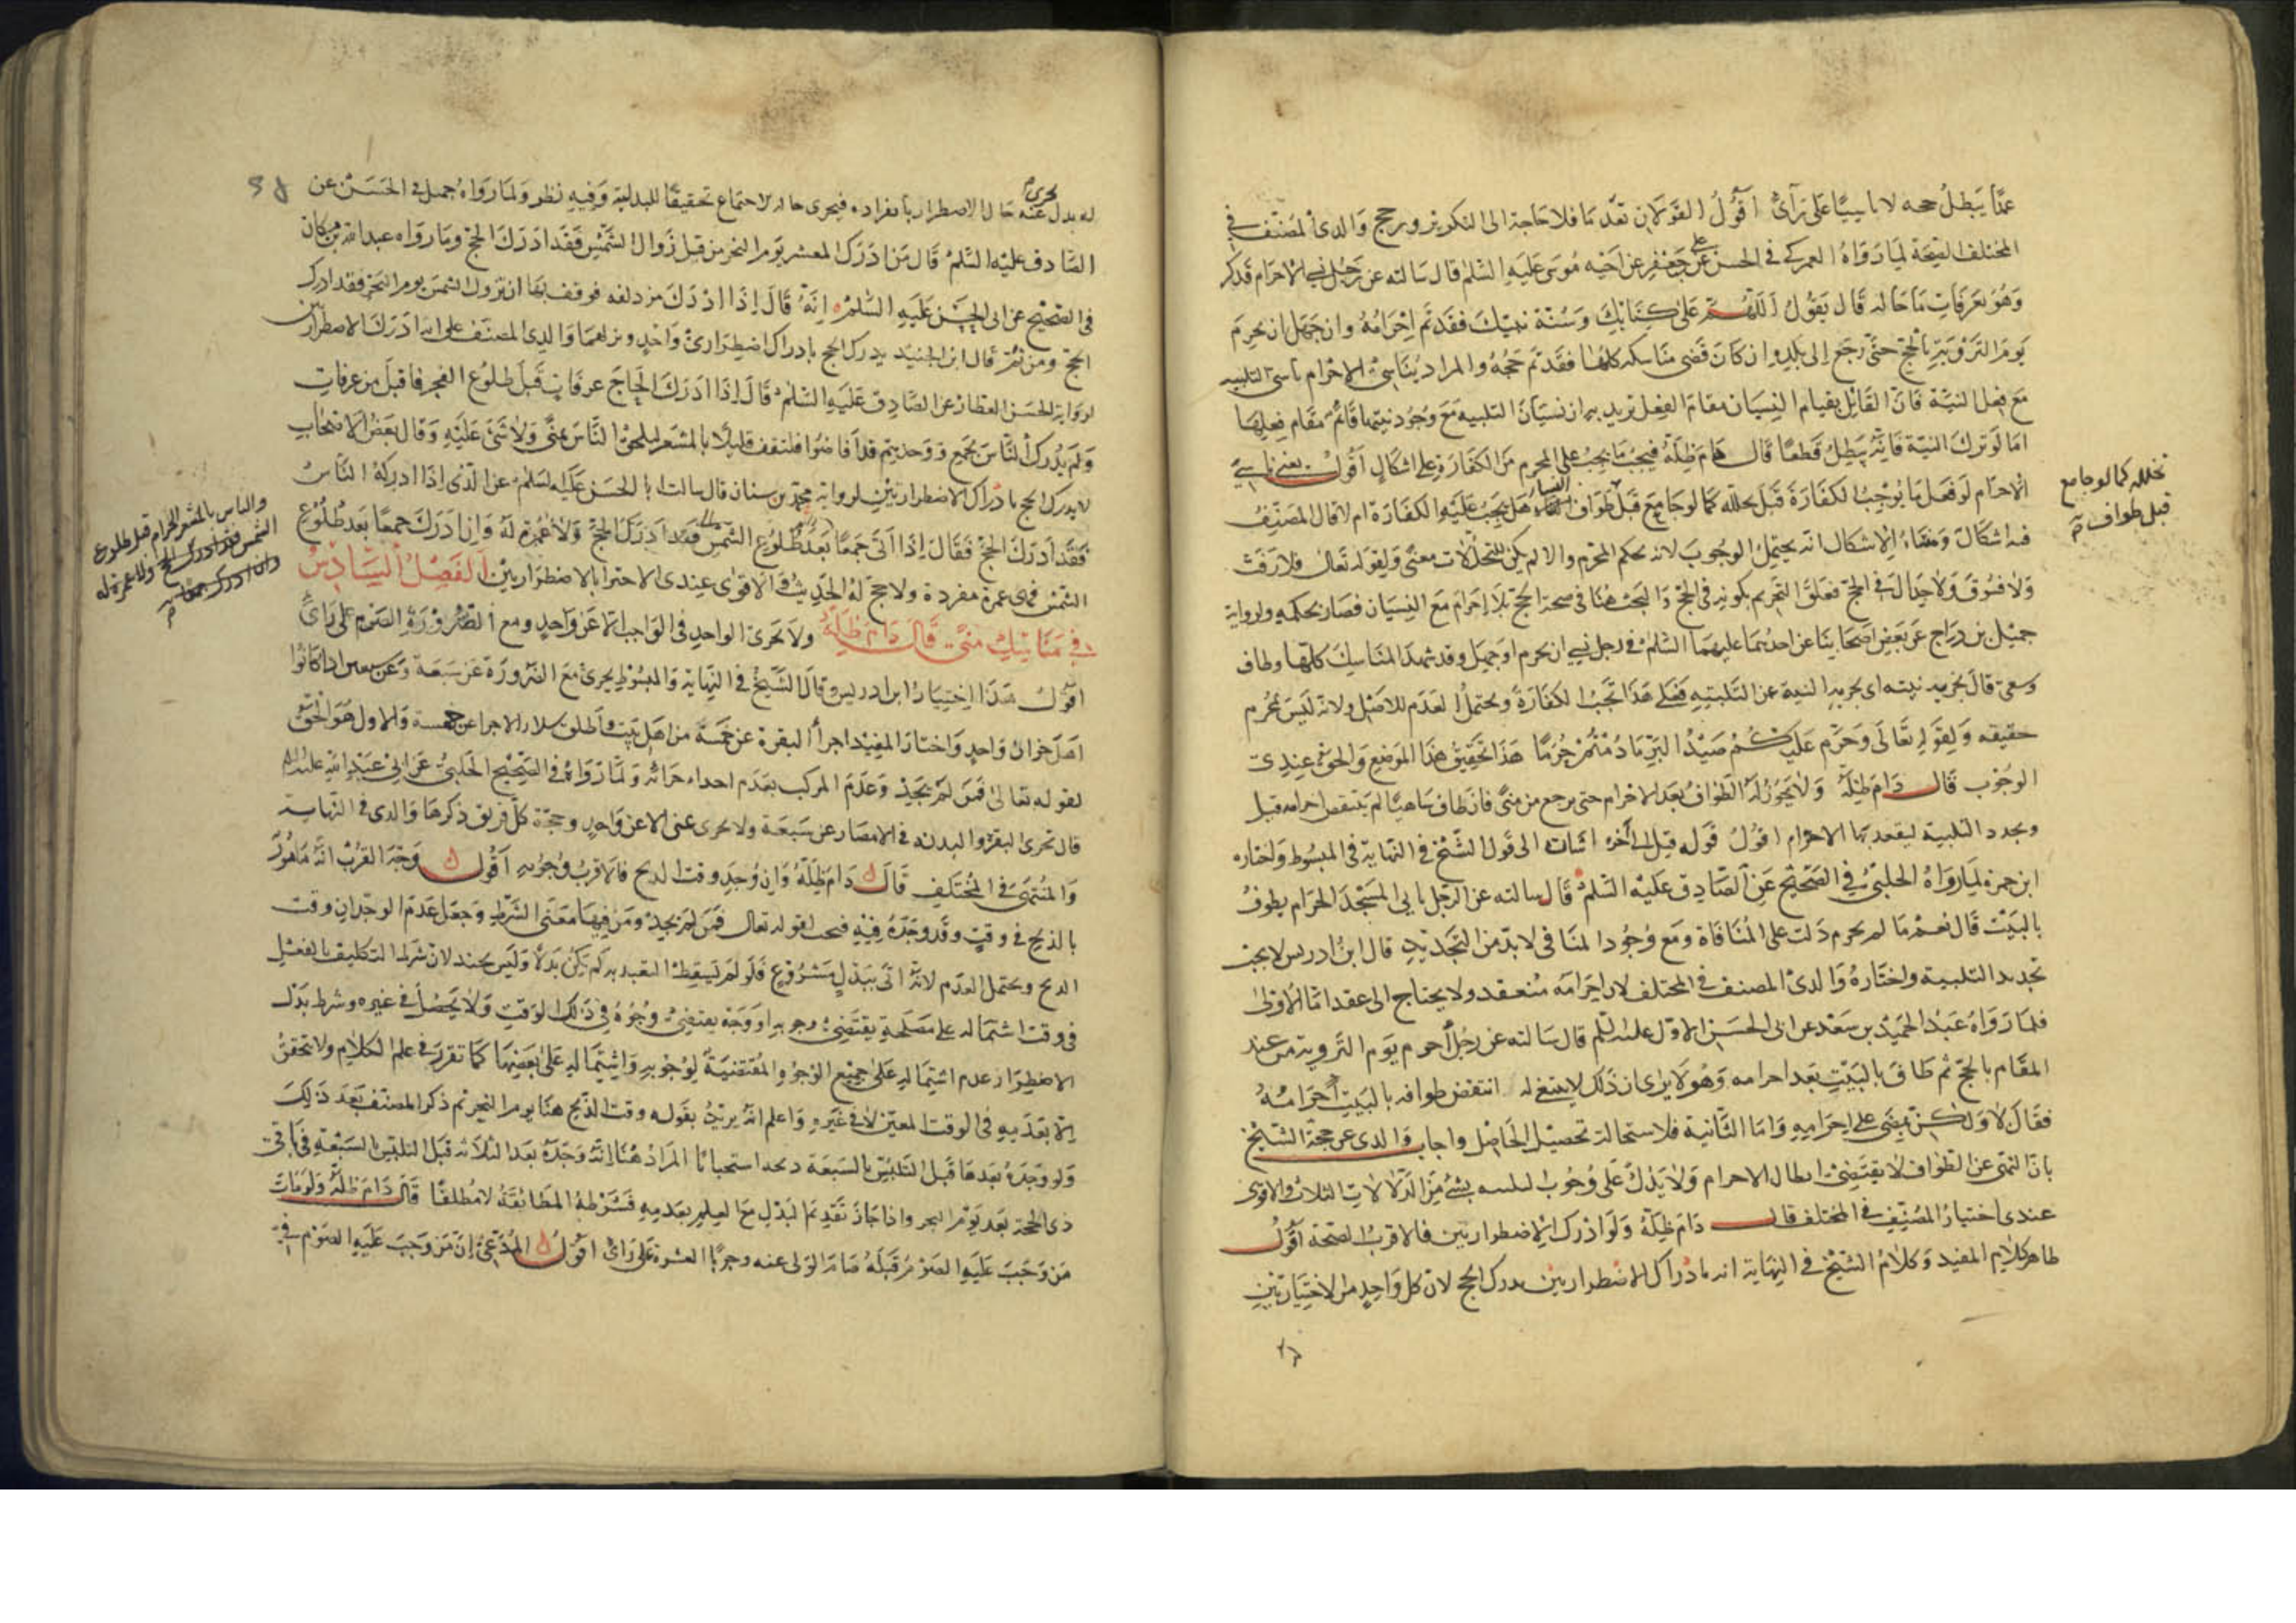 عمدًا يبطل حجه لا ناسيًا على رأى اقول القولان تقدما فلا حاجة الى التكرير ورجح والدى المصنف في
المختلف الصحة لما رواه العمركى فى الحسن عن على بن جعفر عن اخيه موسى عليه السلم قال سالته عن رجل نسى الاحرام فذكر
وهو بعرفات ما حاله قال يقول اللهم على كتابك وسنة نبيك فقد تم احرامه وان جهل ان يحرم
يوم التروية بالحج حتى رجع الى بلده ان كان قضى مناسكه كلها فقد تم حجه والمراد بناسى الاحرام ناسى التلبيه
مع فعل النية فان القائل بقيام النسيان مقام الفعل يريد به ان نسيان التلبيه مع وجود نيتها قائم مقام فعلها
اما لو ترك النية فانه يبطل قطعًا قال دام ظله فيجب ما يجب على المحرم من الكفارة على اشكال اقول يعنى ناسى
الاحرام لو فعل ما يوجب الكفارة قبل تحلله كما لو جامع قبل طواف النساء هل يجب عليه الكفارة ام لا قال المصنف
تحلله كما لو جامع
قبل طواف
فيه اشكال ومنشاء الاشكال انه يحتمل الوجوب لانه بحكم المحرم والا لم يكن للتحللات معنى ولقوله تعالى فلا رفث
ولا فسوق ولا جدال فى الحج فعلق التحريم بكونه فى الحج والبحث هنا فى صحة الحج بلا احرام مع النسيان فصار بحكمه ولرواية
جميل بن دراج عن بعض اصحابنا عن احدهما عليهما السلم فى رجل نسى ان يحرم او جهل وقد شهد المناسك كلها وطاف
وسعى قال يجزيه نيته اى يجزيه النية عن التلبية فعلى هذا تجب الكفارة ويحتمل العدم للاصل ولانه ليس بمحرم
حقيقه ولقوله تعالى وحرم عليكم صيد البر ما دمتم حرما هذا تحقيق هذا الموضع والحق عندى
الوجوب قال دام ظله ولا يجوز له الطواف بعد الاحرام حتى يرجع من منى فان طاف ساهيًا لم ينتقض احرامه قيل
ويجدد التلبية ليعقد بها الاحرام اقول قوله قيل الى آخره اشارة الى قول الشيخ فى النهاية فى المبسوط واختاره
ابن حمزة لما رواه الحلبى فى الصحيح عن الصادق عليه السلم قال سالته عن الرجل ياتى المسجد الحرام يطوف
بالبيت قال نعم ما لم يحرم دلت على المنافاة ومع وجود المنافى لا بد من التجديد قال ابن ادريس لا يجب
تجديد التلبية واختاره والدى المصنف فى المختلف لان احرامه منعقد ولا يحتاج الى عقد اما الاولى
فلما رواه عبد الحميد بن سعد عن ابى الحسن الاول عليه السلم قال سالته عن رجل احرم يوم التروية من عند
المقام بالحج ثم طاف بالبيت بعد احرامه وهو لا يرى ان ذلك لا ينبغى له انتقض طوافه بالبيت احرامه
فقال لا ولكن يمضى على احرامه واما الثانية فلاستحالة تحصيل الحاصل واجاب والدى عن حجة الشيخ
بان النهى عن الطواف لا يقتضى ابطال الاحرام ولا يدل على وجوب التلبيه بشئ من الدلالات الثلاث والاقوى
عندى اختيار المصنف فى المختلف قال دام ظله ولو ادرك الاضطراريين فالاقرب الصحة اقول
ظاهر كلام المفيد وكلام الشيخ فى النهاية انه بادراك الاضطراريين يدرك الحج لان كل واحد من الاختياريين
له بدل عنه حال الاضطرار بانفراده فيجرى حاله لاجتماع تحقيقًا للبدلية وفيه نظر ولما رواه جميل فى الحسن عن
الصادق عليه السلم قال من ادرك المعشر يوم النحر من قبل زوال الشمس فقد ادرك الحج وما رواه عبد الله بن مسكان
فى الصحيح عن ابى الحسن عليه السلم انه قال اذا ادرك مزدلفه فوقف بها ان تزول الشمس يوم النحر فقد ادرك
الحج ومن ثم قال ابن الجنيد يدرك الحج بادراك اضطرارى واحد ومذهبهما والدى المصنف على انه ادرك الاضطراريين
لرواية الحسن العطار عن الصادق عليه السلم قال اذا ادرك الحاج عرفات قبل طلوع الفجر فاقبل من عرفات
ولم يدرك الناس بجمع ووجدهم قد افاضوا فليقف قليلا بالمشعر ليلحق الناس بمنى ولا شئ عليه وقال بعض الاصحاب
لا يدرك الحج بادراك الاضطراريين لرواية محمد بن سنان قال سالت ابا الحسن عليه السلم عن الذى اذا ادركه الناس
فقد ادرك الحج فقال اذا اتى جمعًا بعد طلوع الشمس فقد ادرك الحج ولا عمرة له وان ادرك جمعًا بعد طلوع
والناس بالمشعر الحرام قبل طلوع
الشمس فقد ادرك الحج ولا عمرة له
وان ادرك جمعا
الشمس فهى عمرة مفردة ولا حج له الحديث والاقوى عندى الاجتزا بالاضطراريين الفصل السادس
فى مناسك منى قال دام ظله ولا يجرى الواحد فى الواجب الا عن واحد ومع الضرورة الصوم على راى
اقول هذا اختيار ابن ادريس وقال الشيخ فى النهاية والمبسوط يجرى مع الضرورة عن سبعة وعن سبعين اذا كانوا
اهل خوان واحد واختار المفيد اجرأ البقرة عن خمسة من اهل بيت واطلق سلار الاجرا عن خمسة والاول هو الحق
لقوله تعالى فمن لم يجد وعدم المركب بعدم احد اجزائه ولما رواه فى الصحيح الحلبى عن ابى عبد الله عليه السلم
قال تجرى البقرة والبدنه فى الامصار عن سبعة ولا يجرى عنى الا عن واحد وحجة كل فريق ذكرها والدى فى النهاية
والمنتهى فى المختلف قال دام ظله وان وجد وقت الذبح فالاقرب وجوبه اقول وجه القرب انه مامور
بالذبح فى وقت وقد وجده فيه فيجب لقوله تعالى فمن لم يجد ومن فيها معنى الشرط وجعل عدم الوجدان وقت
الذبح ويحتمل العدم لانه اتى ببدل مشروع فلو لم يسقط التعبد به لم يكن بدلًا وليس بجيد لان شرط التكليف بالفعل
فى وقت اشتماله على مصلحة يقتضى وجوبه او وجه يقتضى وجوبه فى ذلك الوقت ولا يحصل فى غيره وشرط بدل
الاضطرار عدم اشتماله على جميع الوجوه المقتضية لوجوبه واشتماله على بعضها كما تقرر فى علم الكلام ولا يتحقق
الا بعدمه فى الوقت المعين لا فى غيره واعلم انه يريد بقوله وقت الذبح هنا يوم النحر ثم ذكر المصنف بعد ذلك
ولو وجده بعدها قبل التلبس بالسبعة استحبابًا المراد هنا انه وجده بعد الثلاثه قبل التلبس بالسبعة فى باقى
ذى الحجة بعد يوم النحر واذا جاز تقديم البدل مع العلم بعدمه فشرطه المطابقة لا مطلقًا قال دام ظله ولو مات
من وجب عليه الصوم قبله صام الولى عنه وجوبًا العشرة على راى اقول المدعى ان من وجب عليه الصوم فى